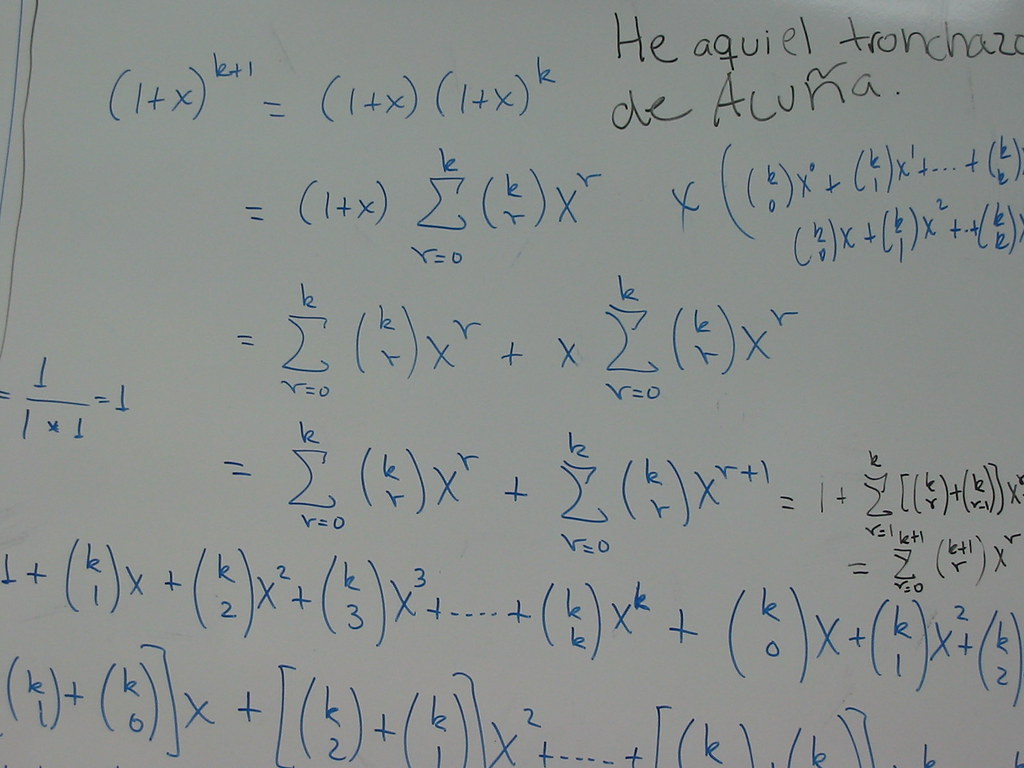 He aquiel tronchazo
de Acuña.
(1+x)^{k+1} = (1+x) (1+x)^k
= (1+x) \sum_{r=0}^{k} \binom{k}{r} x^r
x ( \binom{k}{0} x^0 + \binom{k}{1} x^1 + .... + \binom{k}{k}
\binom{k}{0} x + \binom{k}{1} x^2 + .. + \binom{k}{k} x
= \sum_{r=0}^{k} \binom{k}{r} x^r + x \sum_{r=0}^{k} \binom{k}{r} x^r
= \frac{1}{1 * 1} = 1
= \sum_{r=0}^{k} \binom{k}{r} x^r + \sum_{r=0}^{k} \binom{k}{r} x^{r+1} = 1 + \sum_{r=1}^{k} [ \binom{k}{r} + \binom{k}{r-1} ] x^r
= \sum_{r=0}^{k+1} \binom{k+1}{r} x^r
1 + \binom{k}{1} x + \binom{k}{2} x^2 + \binom{k}{3} x^3 + ..... + \binom{k}{k} x^k + \binom{k}{0} x + \binom{k}{1} x^2 + \binom{k}{2}
\binom{k}{1} + \binom{k}{0} ] x + [ \binom{k}{2} + \binom{k}{1} ] x^2 + ..... + [